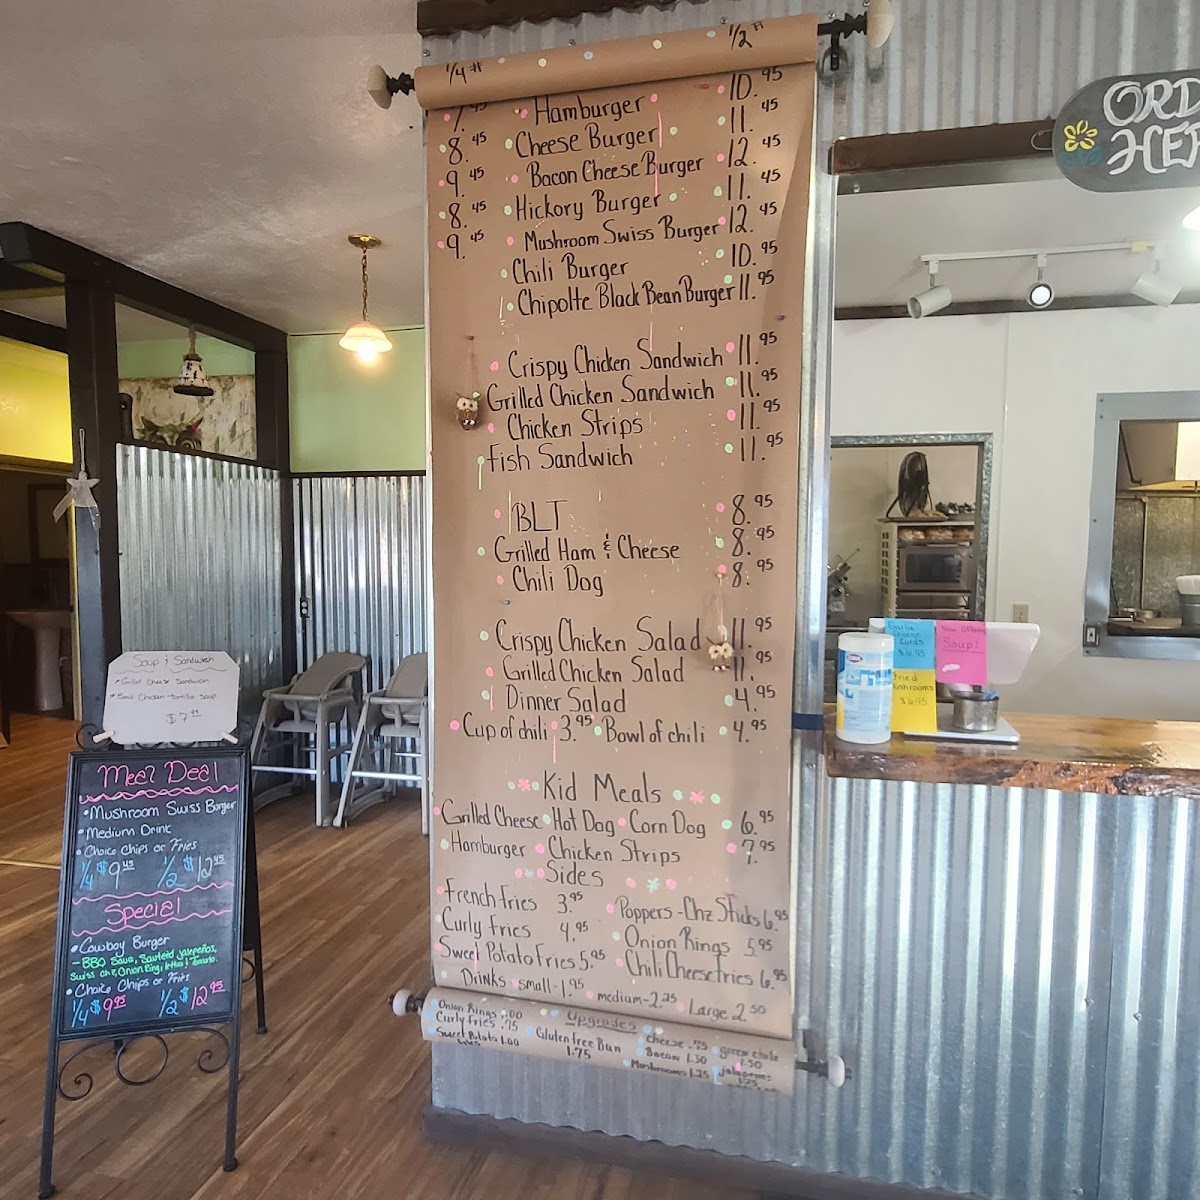 1/4 # 1/2 #
7. 95 Hamburger 10. 95
8. 45 Cheese Burger 11. 45
9. 45 Bacon Cheese Burger 12. 45
8. 45 Hickory Burger 11. 45
9. 45 Mushroom Swiss Burger 12. 45
Chili Burger 10. 95
Chipolte Black Bean Burger 11. 95
Crispy Chicken Sandwich 11. 95
Grilled Chicken Sandwich 11. 95
Chicken Strips 11. 95
Fish Sandwich 11. 95
BLT 8. 95
Grilled Ham & Cheese 8. 95
Chili Dog 8. 95
Crispy Chicken Salad 11. 95
Grilled Chicken Salad 11. 95
Dinner Salad 4. 95
Cup of chili 3. 95 Bowl of chili 4. 95
Kid Meals
Grilled Cheese Hot Dog Corn Dog 6. 95
Hamburger Chicken Strips 7. 95
Sides
French Fries 3. 95 Poppers - Chz Sticks 6. 95
Curly Fries 4. 95 Onion Rings 5. 95
Sweet Potato Fries 5. 95 Chili Cheese Fries 6. 95
Drinks small - 1. 95 medium - 2. 25 Large 2. 50
Upgrades
Onion Rings 1.00
Curly Fries .75
Sweet Potato 1.00
Fries
Gluten free Bun
1.75
cheese .75
Bacon 1.50
Mushrooms 1.25
green chile
1.50
jalapenos
1.25
Soup & Sandwich
Grilled Cheese Sandwich
Bowl Chicken tortilla soup
$ 7 95
Meal Deal
Mushroom Swiss Burger
Medium Drink
Choice Chips or Fries
1/4 $9 45 1/2 $12 45
Special
Cowboy Burger
- BBQ Sauce, Sauteid jalapeños,
Swiss chz, Onion Ring, lettuce & Tomato.
Choice Chips or Fries
1/4 $9 95 1/2 $12 95
ORD
HER
Garlic
Cheese
Curds
$6.95
Now Offering
Soup!
Fried
Mushrooms
$6.95
CLOROX